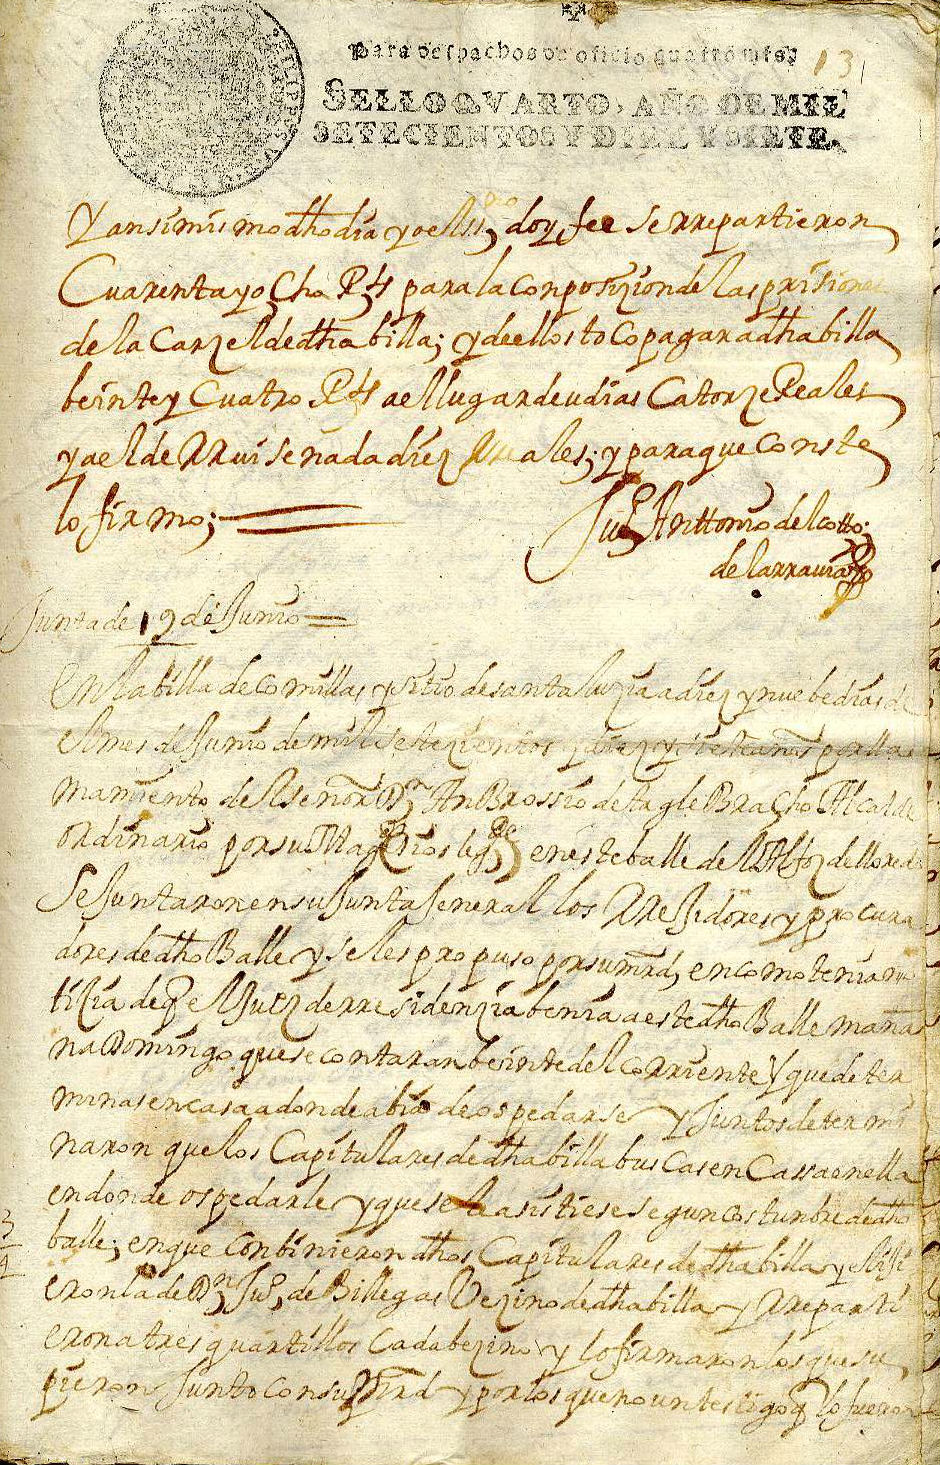 Para despachos de oficio quatro mrs.
131
SELLO QVARTO, AÑO DE MIL
SETECIENTOS Y DIEZ Y SIETE.
Y ansimismo dho dia yo el ssno doy fee se rrepartieron
Cuarenta y ocho Rs para la conposizion de las prisiones
de la Carzel de dha billa; y de ellos toco pagar a dha billa
beinte y Cuatro Rs a el lugar de udias Catorze Reales
y a el de rruiseñada diez rreales; y para que conste
lo firmo;
Juo Anttonio del cotto
de larrauia
Junta de 19 de Junio
En la billa de comillas y sitio de santa luzia a diez y nuebe dias de
el mes de Junio de mil setezientos y diez y siete años por lla
mamiento de el señor Dn AnBrossio de tagle Bracho Alcalde
ordinario por su Magd Dios le gde en este balle del Alfoz de lloredo
se Juntaron en su Junta Jeneral los rrejidores y procura
dores de dho Balle y se les propuso por su mrd, en como tenia no
tizia de q el Juez de rresidenzia benia a este dho Balle maña
na Domingo que se contaran beinte del corriente y que deter
minasen casa a donde abia de ospedarse y Juntos determi
naron que los Capitulares de dha billa buscasen Cassa en ella
en donde ospedarle y que se le asistiese segun costunbre de dho
balle; en que conbinieron dhos Capitulares de dha billa y eliji
eron la de Dn Juo de Billegas Vezino de dha billa y rreparti
eron a tres quartillos cada bezino y lo firmaron los que su
pieron Junto con su mrd y por los que no un testigo q lo fueron
3
4